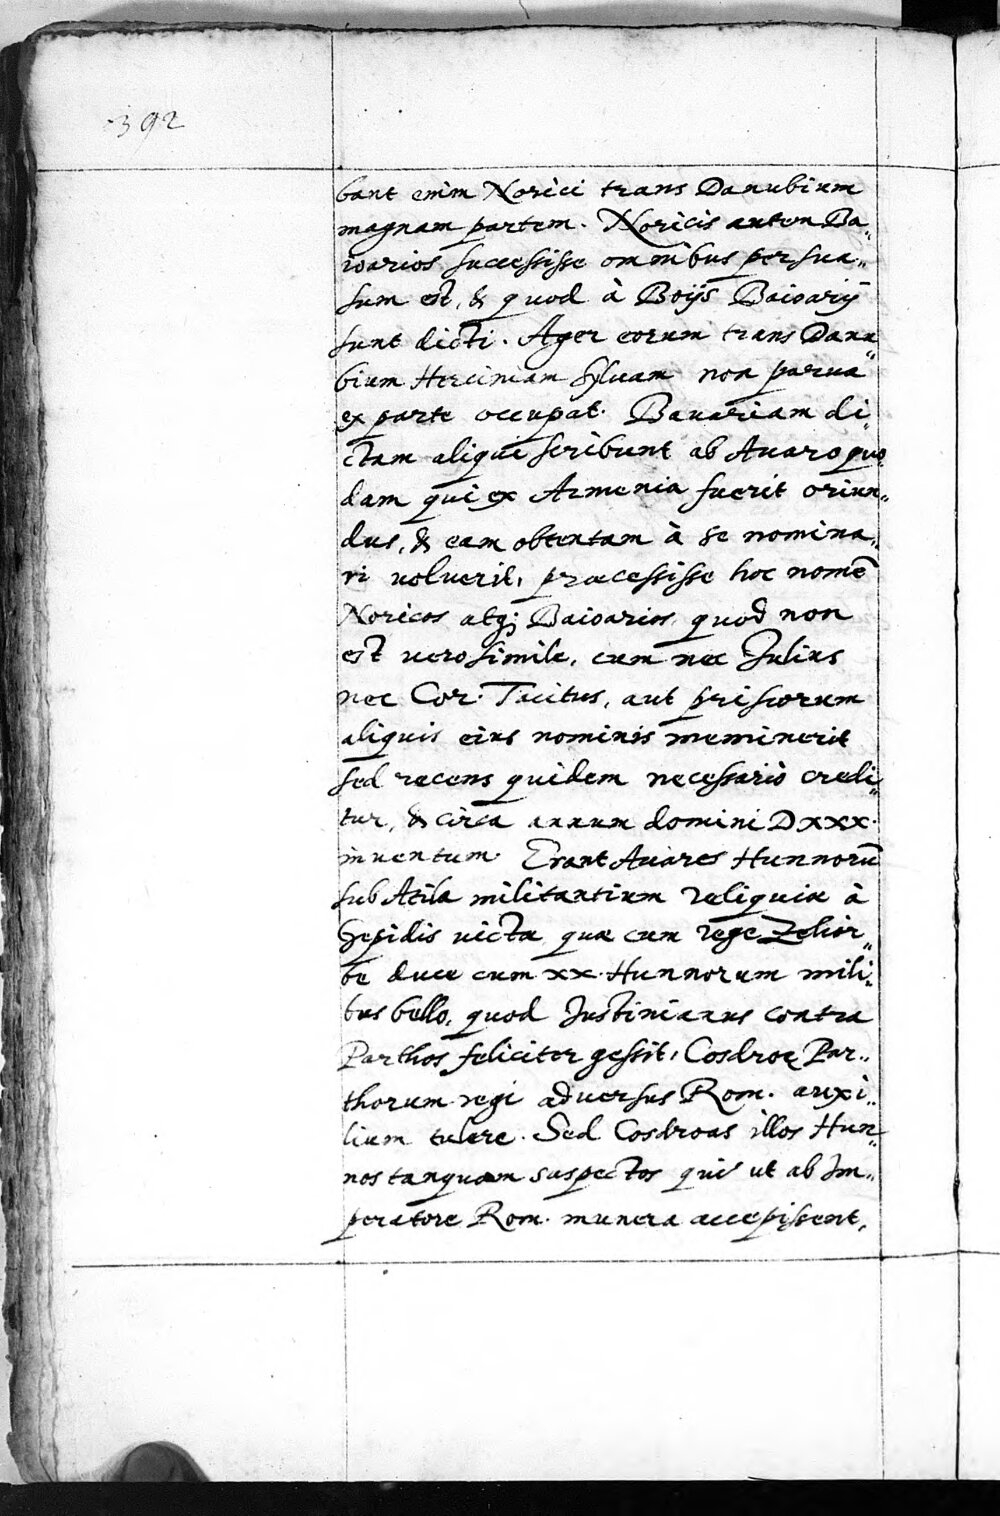 392
bant enim Norici trans Danubium
magnam partem. Noricis autem Ba„
ioarios successisse omnibus persua„
sum est, & quod à Boijs Baioarij
sunt dicti. Ager eorum trans Danu„
bium Herciniam sylvam non parua
ex parte occupat. Bauariam di„
ctam aliqui scribunt ab Auaro quo„
dam qui ex Armenia fuerit oriun„
dus, & eam obtentam à se nomina„
ri uoluerit, præcessisse hoc nomē
Noricos atq; Baioarios, quod non
est uerosimile, cum nec Julius
nec Cor. Tacitus, aut priscorum
aliquis eius nominis meminerit
sed recens quidem necessariò credi„
tur, & circa annum domini DXXX.
inuentum. Erant Auares Hunnorū
sub Atila militantium reliquiæ à
Gepidis victæ quæ cum rege Zelior„
be duce cum xx. Hunnorum mili„
bus bello, quod Justinianus contra
Parthos feliciter gessit, Cosdroę Par„
thorum regi aduersus Rom. auxi„
lium tulere. Sed Cosdroas illos Hun„
nos tanquam suspectos qui ut ab Im„
peratore Rom. munera accepissent,